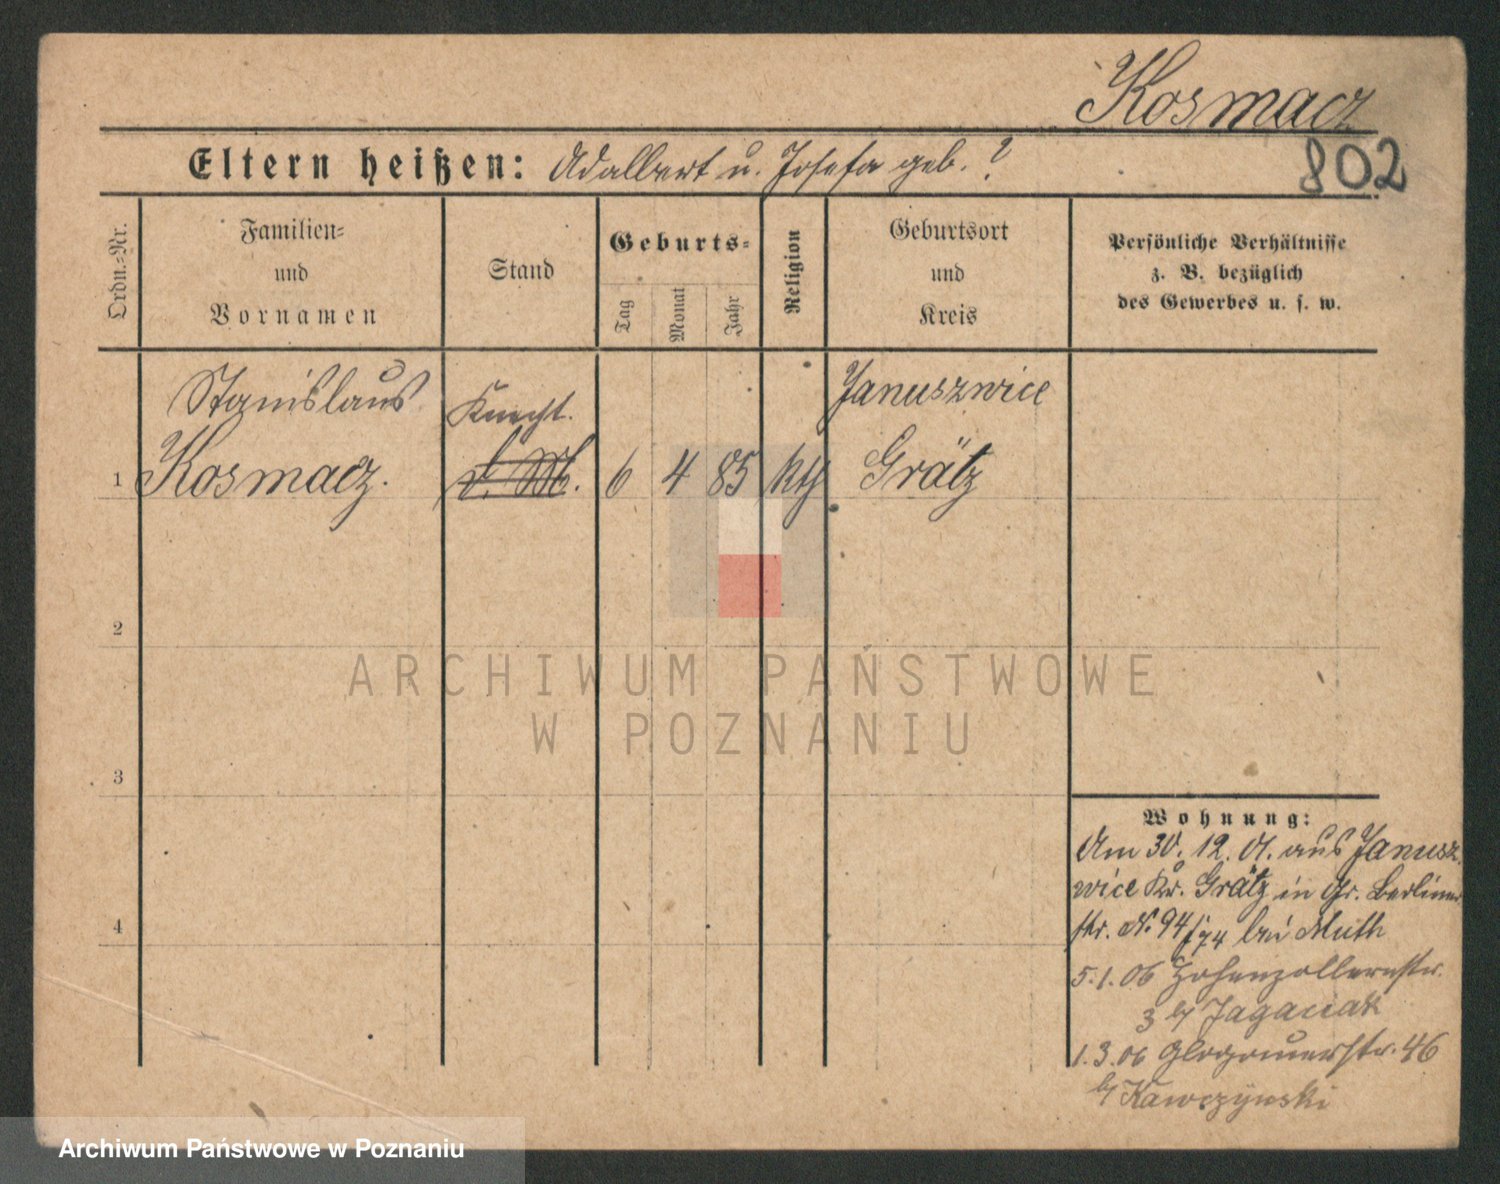 Kosmacz
802
Eltern heißen: Adalbert u. Josefa geb. ?
Ordn.-Nr.
Familien-
und
Vornamen
Stand
Geburts-
Tag
Monat
Jahr
Religion
Geburtsort
und
Kreis
Persönliche Verhältnisse
z. B. bezüglich
des Gewerbes u. s. w.
Stanislaus
Knecht.
Januszwice
1 Kosmacz. 6 4 85 kth Grätz
2
3
4
Wohnung:
Am 30. 12. 01. aus Janusz
wice Kr. Grätz in Gr. Berliner
str. No 94/74 bei Muth
5.1.06 Hohenzollernstr.
3 b/ Jagaciak
1.3.06 Glogauerstr. 46
b/ Kawczynski
ARCHIWUM PAŃSTWOWE
W POZNANIU
Archiwum Państwowe w Poznaniu